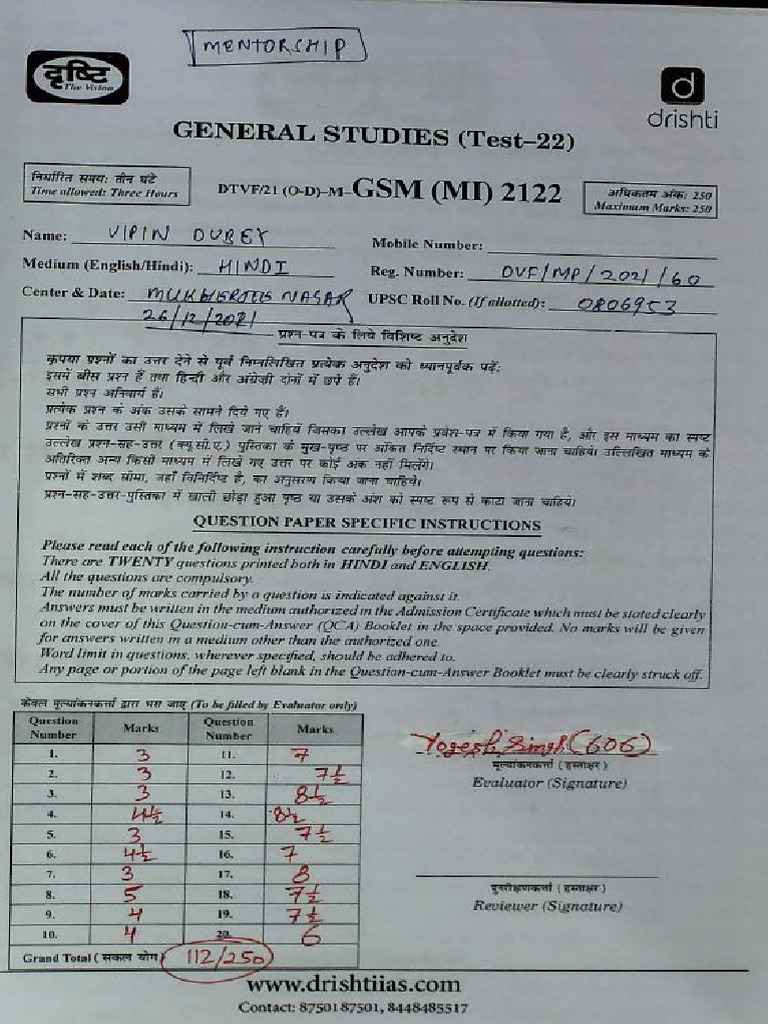 MENTORSHIP
दृष्टि
The Vision
d
drishti
GENERAL STUDIES (Test–22)
निर्धारित समय: तीन घंटे
Time allowed: Three Hours
DTVF/21 (O-D)–M–GSM (MI) 2122
अधिकतम अंक: 250
Maximum Marks: 250
Name: VIPIN DUBEY
Mobile Number:
Medium (English/Hindi): HINDI
Reg. Number: DVF/MP/2021/60
Center & Date: MUKHERJEE NAGAR
26/12/2021
UPSC Roll No. (If allotted): 0806953
प्रश्न-पत्र के लिये विशिष्ट अनुदेश
कृपया प्रश्नों का उत्तर देने से पूर्व निम्नलिखित प्रत्येक अनुदेश को ध्यानपूर्वक पढ़ें:
इसमें बीस प्रश्न हैं तथा हिन्दी और अंग्रेज़ी दोनों में छपे हैं।
सभी प्रश्न अनिवार्य हैं।
प्रत्येक प्रश्न के अंक उसके सामने दिये गए हैं।
प्रश्नों के उत्तर उसी माध्यम में लिखे जाने चाहिये जिसका उल्लेख आपके प्रवेश-पत्र में किया गया है, और इस माध्यम का स्पष्ट
उल्लेख प्रश्न-सह-उत्तर (क्यू.सी.ए.) पुस्तिका के मुख-पृष्ठ पर अंकित निर्दिष्ट स्थान पर किया जाना चाहिये। उल्लिखित माध्यम के
अतिरिक्त अन्य किसी माध्यम में लिखे गए उत्तर पर कोई अंक नहीं मिलेंगे।
प्रश्नों में शब्द सीमा, जहाँ विनिर्दिष्ट है, का अनुसरण किया जाना चाहिये।
प्रश्न-सह-उत्तर-पुस्तिका में खाली छोड़ा हुआ पृष्ठ या उसके अंश को स्पष्ट रूप से काटा जाना चाहिये।
QUESTION PAPER SPECIFIC INSTRUCTIONS
Please read each of the following instruction carefully before attempting questions:
There are TWENTY questions printed both in HINDI and ENGLISH.
All the questions are compulsory.
The number of marks carried by a question is indicated against it.
Answers must be written in the medium authorized in the Admission Certificate which must be stated clearly
on the cover of this Question-cum-Answer (QCA) Booklet in the space provided. No marks will be given
for answers written in a medium other than the authorized one.
Word limit in questions, wherever specified, should be adhered to.
Any page or portion of the page left blank in the Question-cum-Answer Booklet must be clearly struck off.
केवल मूल्यांकनकर्त्ता द्वारा भरा जाए (To be filled by Evaluator only)
Question Number Marks Question Number Marks
1. 3 11. 7
2. 3 12. 7½
3. 3 13. 8½
4. 4½ 14. 8½
5. 3 15. 7½
6. 4½ 16. 7
7. 3 17. 8
8. 5 18. 7½
9. 4 19. 7½
10. 4 20. 6
Grand Total (सकल योग) 112/250
Yogesh Singh (606)
मूल्यांकनकर्त्ता (हस्ताक्षर)
Evaluator (Signature)
पुनरीक्षणकर्त्ता (हस्ताक्षर)
Reviewer (Signature)
www.drishtiias.com
Contact: 8750187501, 8448485517